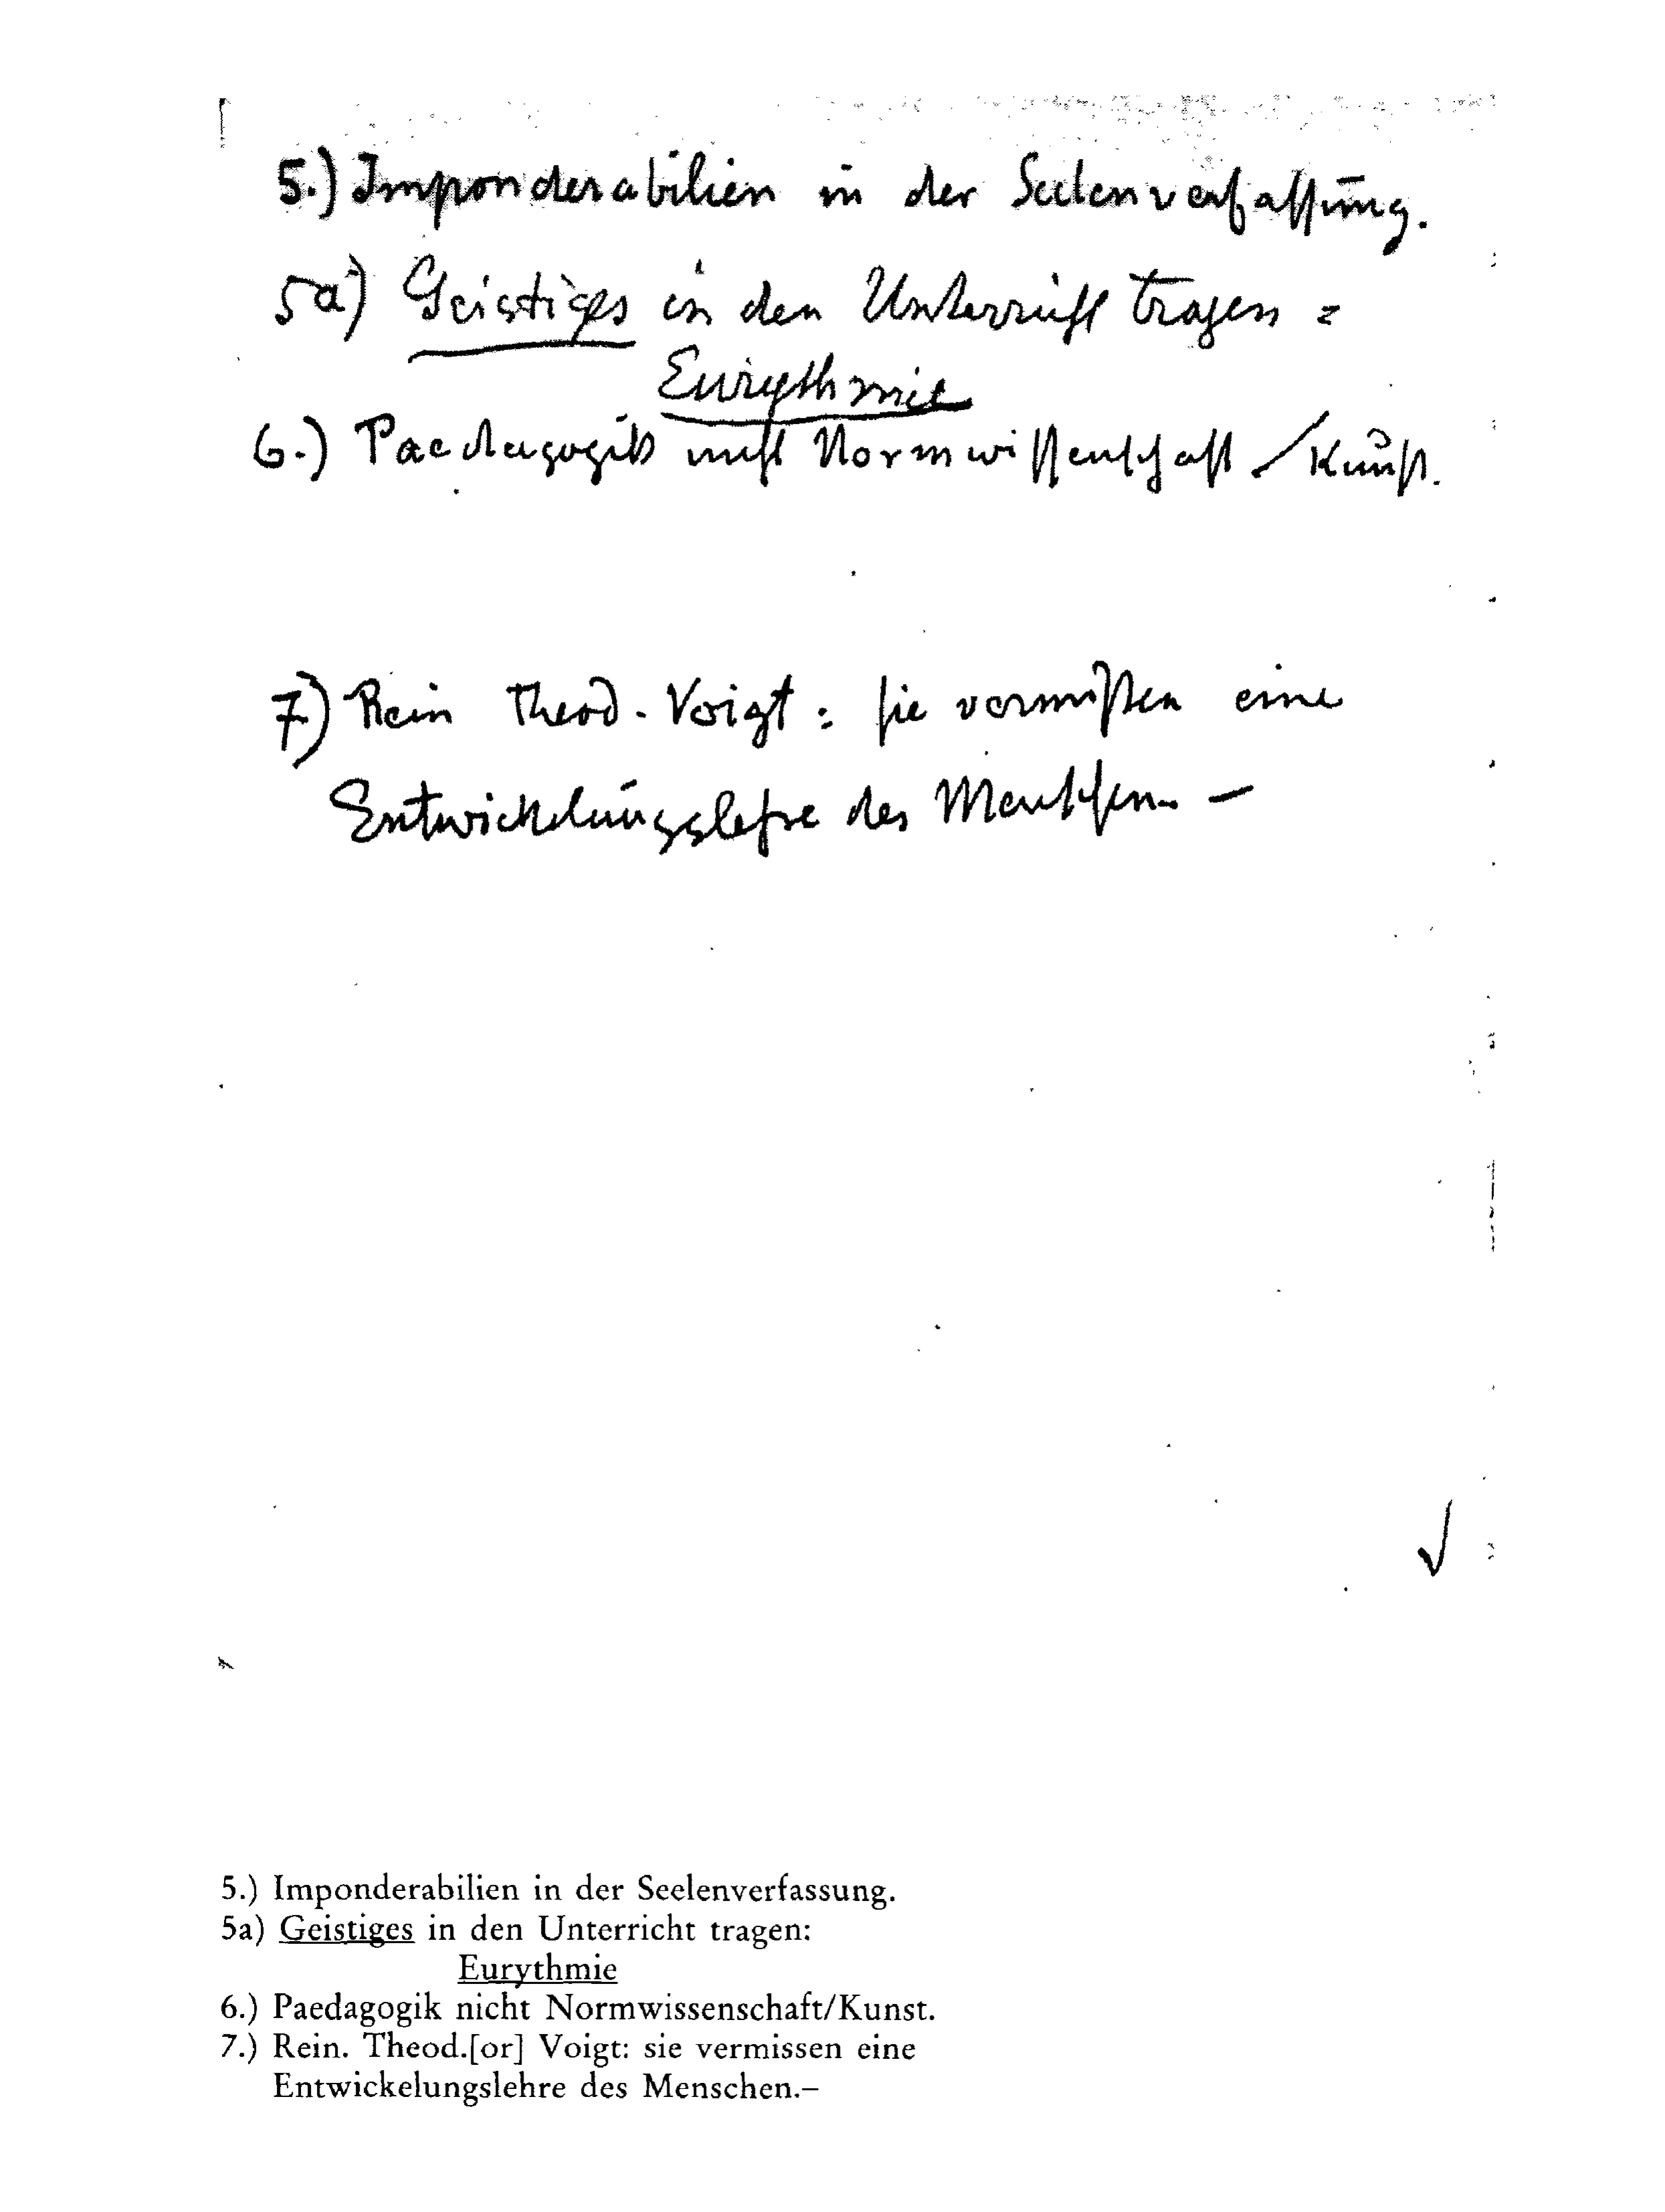 5.) Imponderabilien in der Seelenverfassung.
5a) Geistiges in den Unterricht tragen =
Eurythmie
6.) Paedagogik nicht Normwissenschaft / Kunst.
7) Rein Theod. Voigt : sie vermissen eine
Entwickelungslehre des Menschen. –
5.) Imponderabilien in der Seelenverfassung.
5a) Geistiges in den Unterricht tragen:
Eurythmie
6.) Paedagogik nicht Normwissenschaft/Kunst.
7.) Rein. Theod.[or] Voigt: sie vermissen eine
Entwickelungslehre des Menschen.–